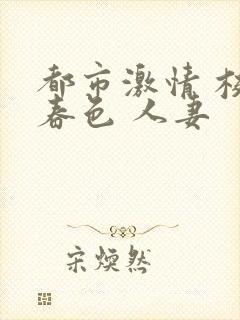 都市激情 校
春色 人妻
宋焕然